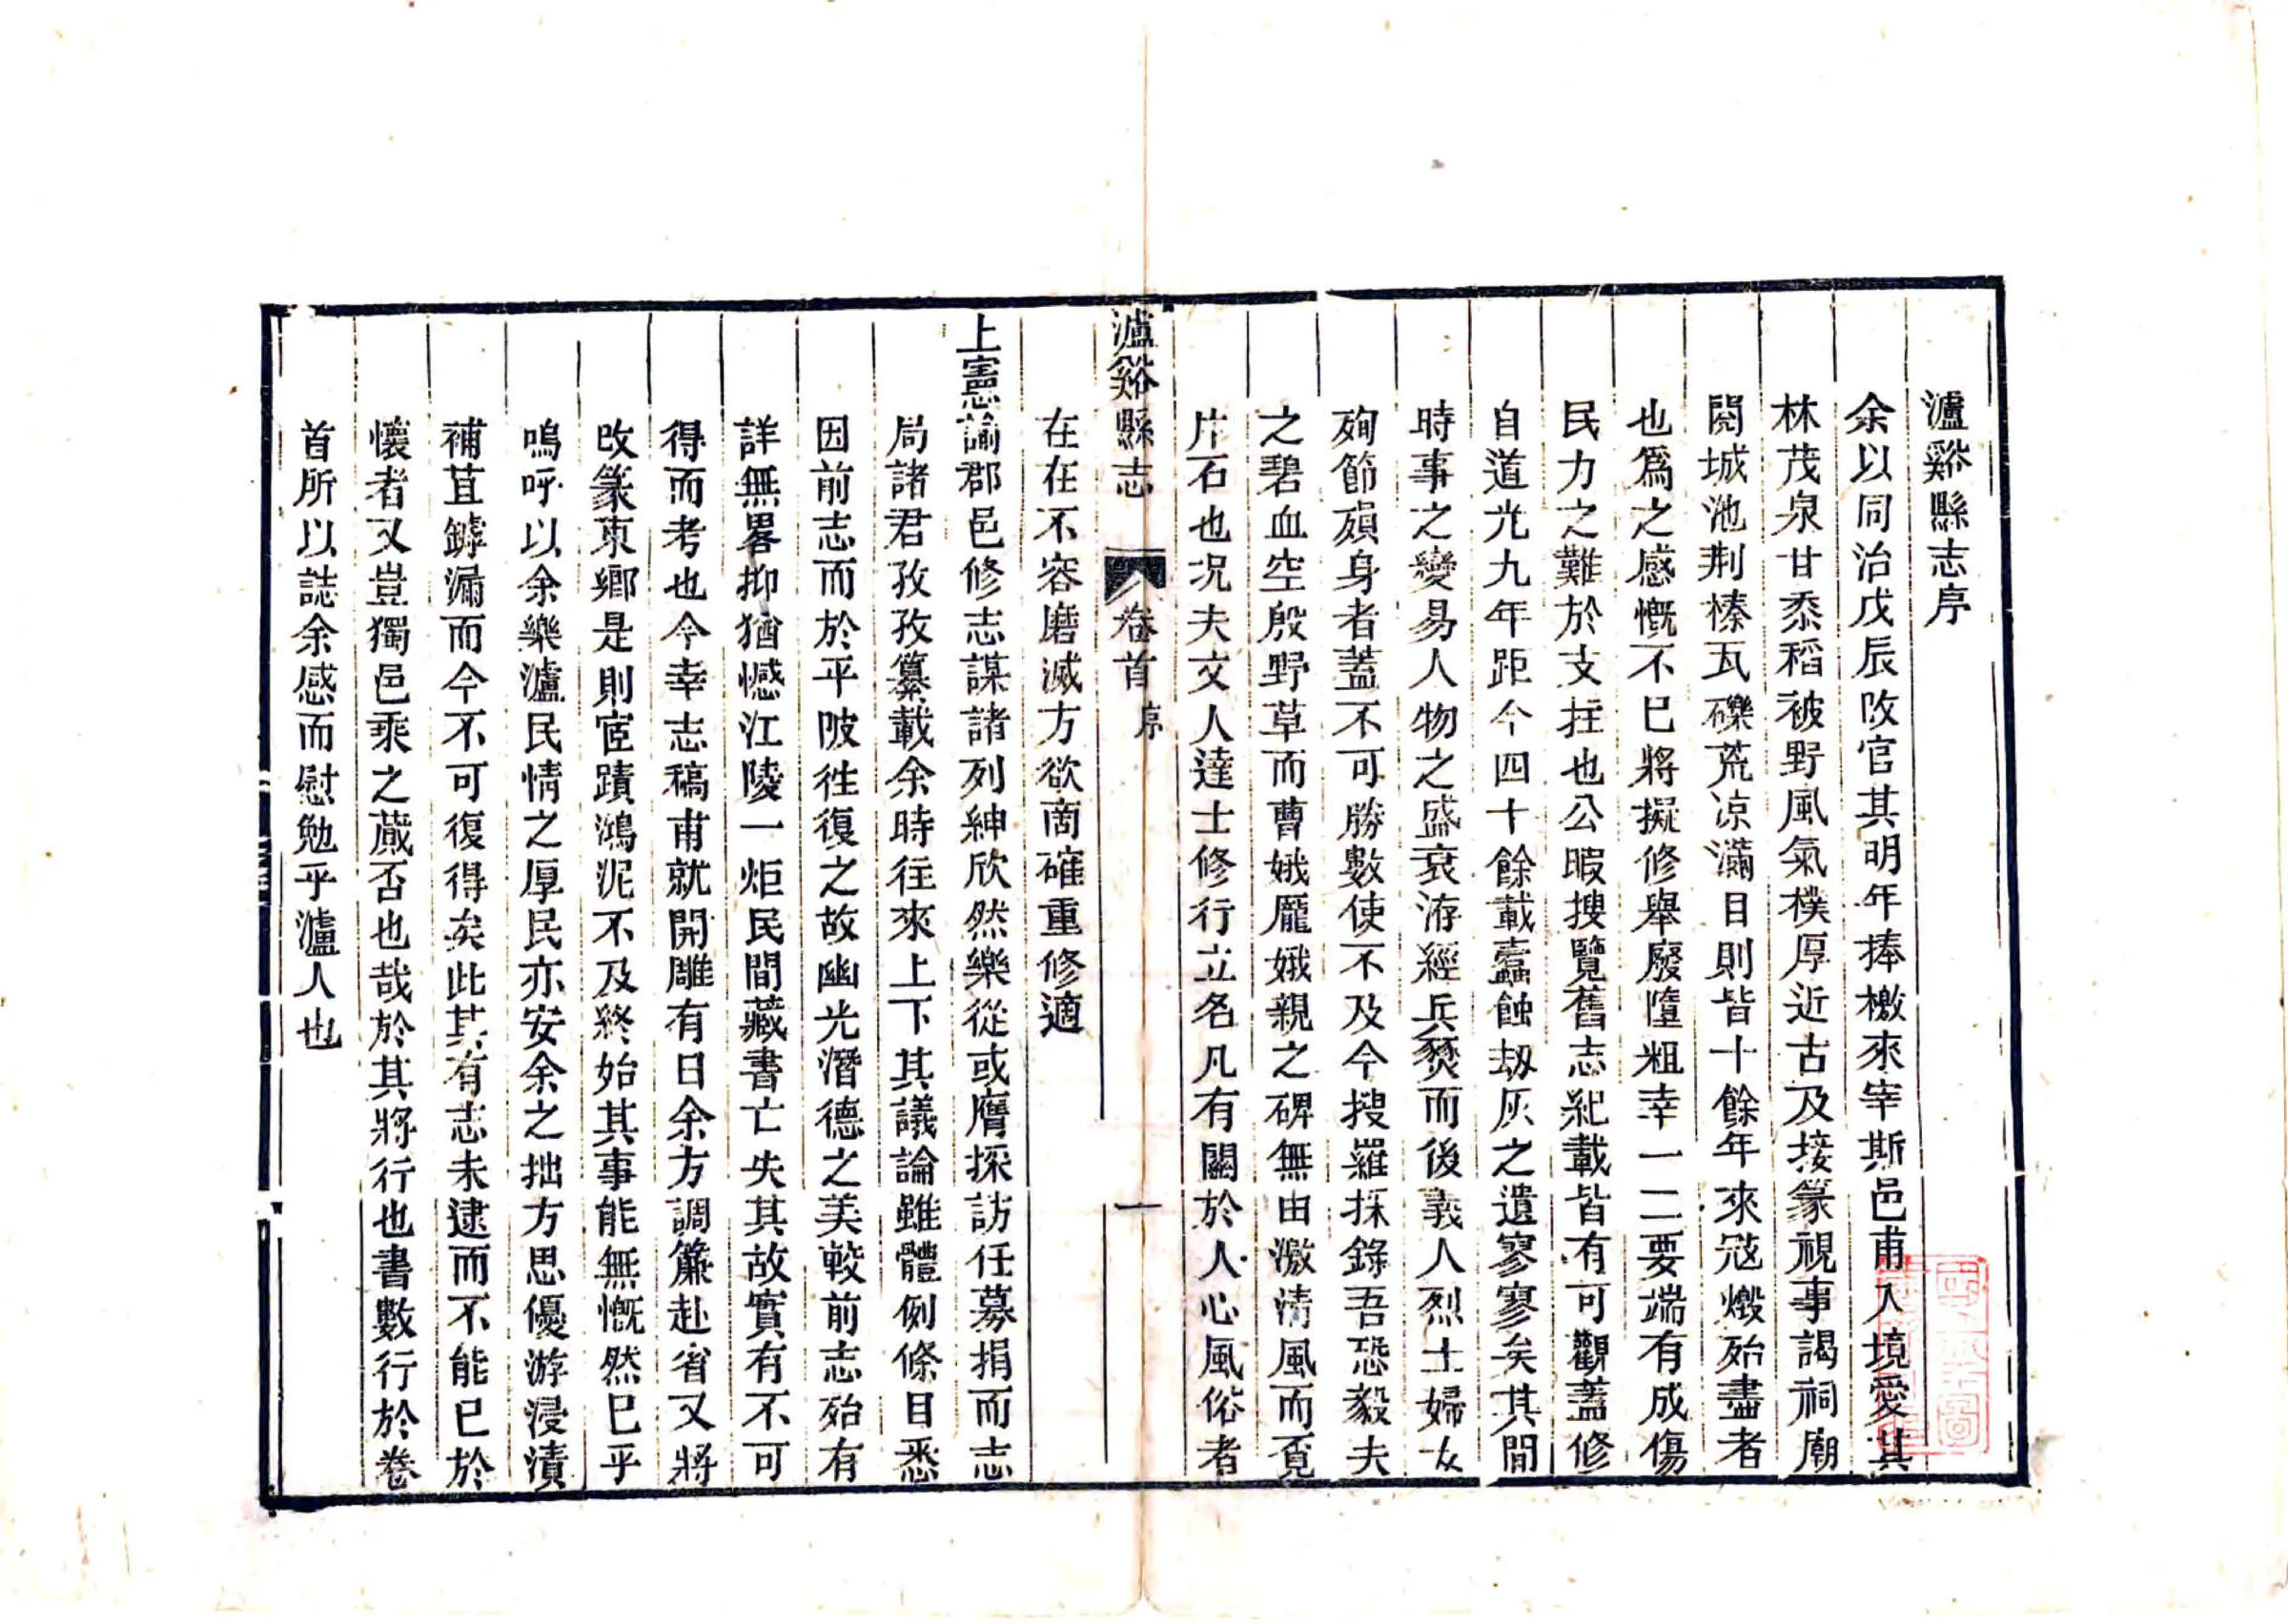 瀘谿縣志序
余以同治戊辰改官其明年捧檄來宰斯邑甫入境愛其
林茂泉甘黍稻被野風氣樸厚近古及接篆視事謁祠廟
閱城池荆榛瓦礫荒凉滿目則皆十餘年來寇燬殆盡者
也爲之感慨不已將擬修舉廢墮粗幸一二要端有成傷
民力之難於支拄也公暇搜覽舊志紀載皆有可觀蓋修
自道光九年距今四十餘載蠹蝕刼灰之遺寥寥矣其間
時事之變易人物之盛衰洊經兵燹而後義人烈士婦女
殉節殞身者蓋不可勝數使不及今搜羅採錄吾恐毅夫
之碧血空殷野草而曹娥龎娥親之碑無由激清風而覔
片石也况夫文人達士修行立名凡有關於人心風俗者
瀘谿縣志 卷首 序 一
在在不容磨滅方欲商確重修適
上憲諭郡邑修志謀諸列紳欣然樂從或膺採訪任募捐而志
局諸君孜孜纂載余時往來上下其議論雖體例條目悉
因前志而於平陂徃復之故幽光潛德之美較前志殆有
詳無畧抑猶憾江陵一炬民間藏書亡失其故實有不可
得而考也今幸志稿甫就開雕有日余方調簾赴省又將
改篆東鄉是則宦蹟鴻泥不及終始其事能無慨然已乎
嗚呼以余樂瀘民情之厚民亦安余之拙方思優游浸漬
補苴罅漏而今不可復得矣此其有志未逮而不能已於
懷者又豈獨邑乘之蕆否也哉於其將行也書數行於卷
首所以誌余感而慰勉乎瀘人也